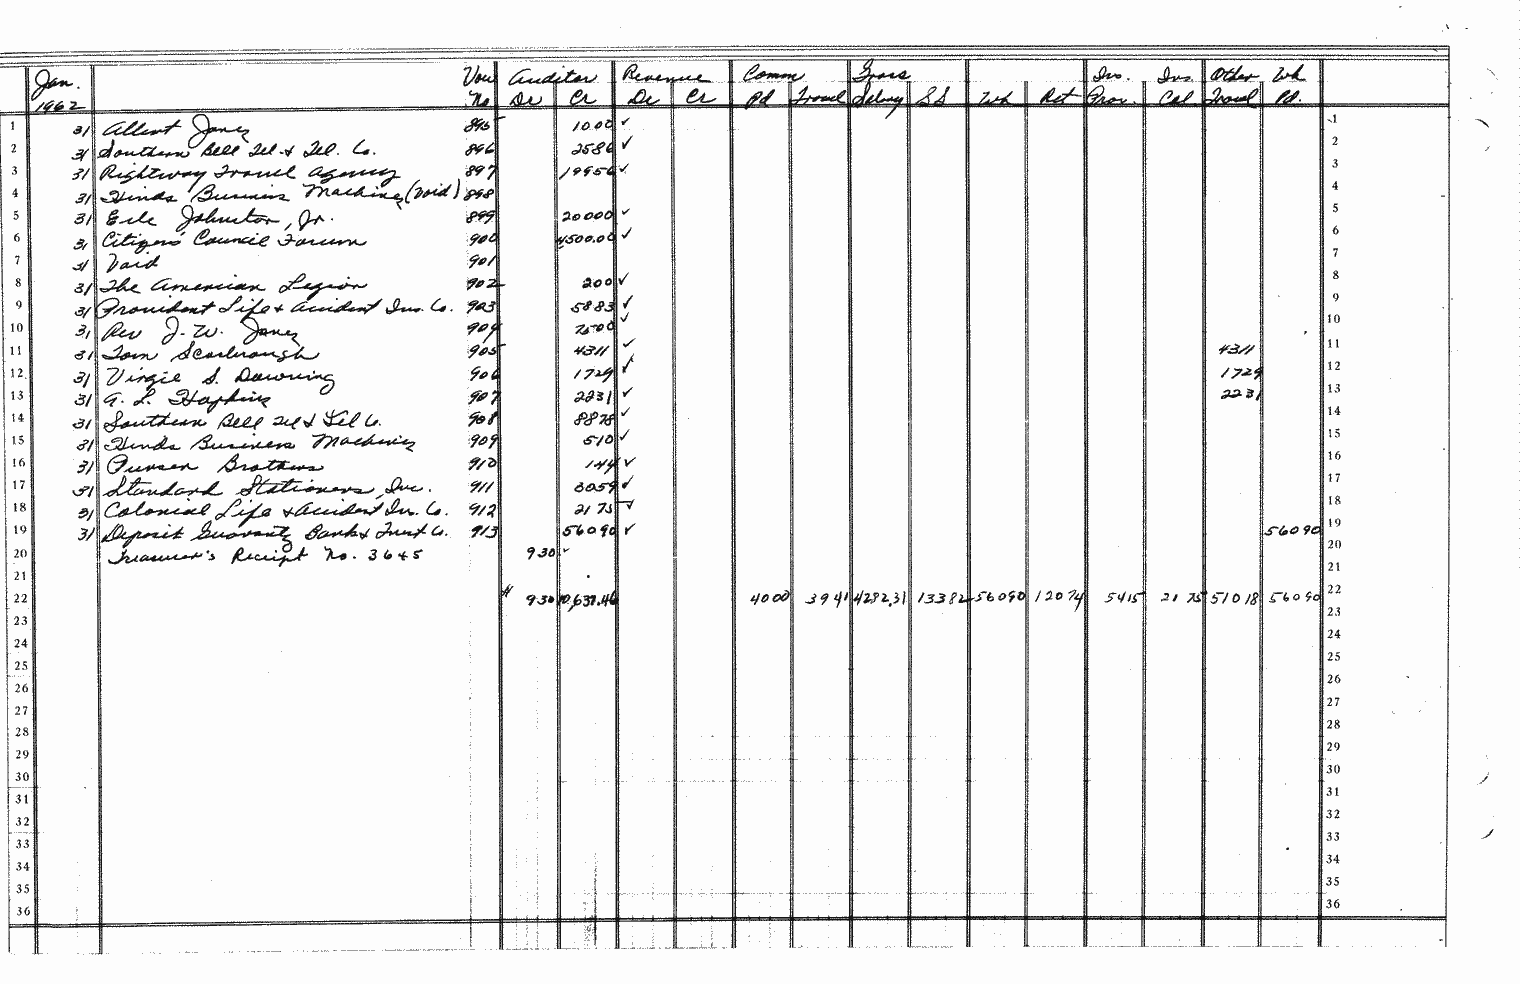 Jan. Vou Auditor Revenue Comm Gross Ins. Ins. Other Wh
1962 No Dr Cr Dr Cr Pd Travel Salary SS Wh Ret Prov. Col Travel Pd.
1 31 Albert Jones 895 10.00 ✓ 1
2 31 Southern Bell Tel. & Tel. Co. 896 2586 ✓ 2
3 31 Rightway Travel Agency 897 19956 ✓ 3
4 31 Hinds Business Machines (Void) 898 4
5 31 Erle Johnston, Jr. 899 20000 ✓ 5
6 31 Citizens' Council Forum 900 4500.00 ✓ 6
7 31 Void 901 7
8 31 The American Legion 902 200 ✓ 8
9 31 Provident Life & Accident Ins. Co. 903 5883 ✓ 9
10 31 Rev J. W. Jones 904 7500 ✓ 10
11 31 Tom Scarbrough 905 4311 ✓ 4311 11
12 31 Virgie S. Downing 906 1729 ✓ 1729 12
13 31 A. L. Hopkins 907 2231 ✓ 2231 13
14 31 Southern Bell Tel & Tel Co. 908 8878 ✓ 14
15 31 Hinds Business Machines 909 510 ✓ 15
16 31 Brothers 910 144 ✓ 16
17 31 Standard Stationers, Inc. 911 3059 ✓ 17
18 31 Colonial Life & Accident Ins. Co. 912 2175 ✓ 18
19 31 Deposit Guaranty Bank & Trust Co. 913 56090 ✓ 56090 19
20 Treasurer's Receipt No. 3645 930 ✓ 20
21 21
22 930 10,637.46 4000 3941 4282.31 13382 56090 12074 5415 2175 51018 56090 22
23 23
24 24
25 25
26 26
27 27
28 28
29 29
30 30
31 31
32 32
33 33
34 34
35 35
36 36